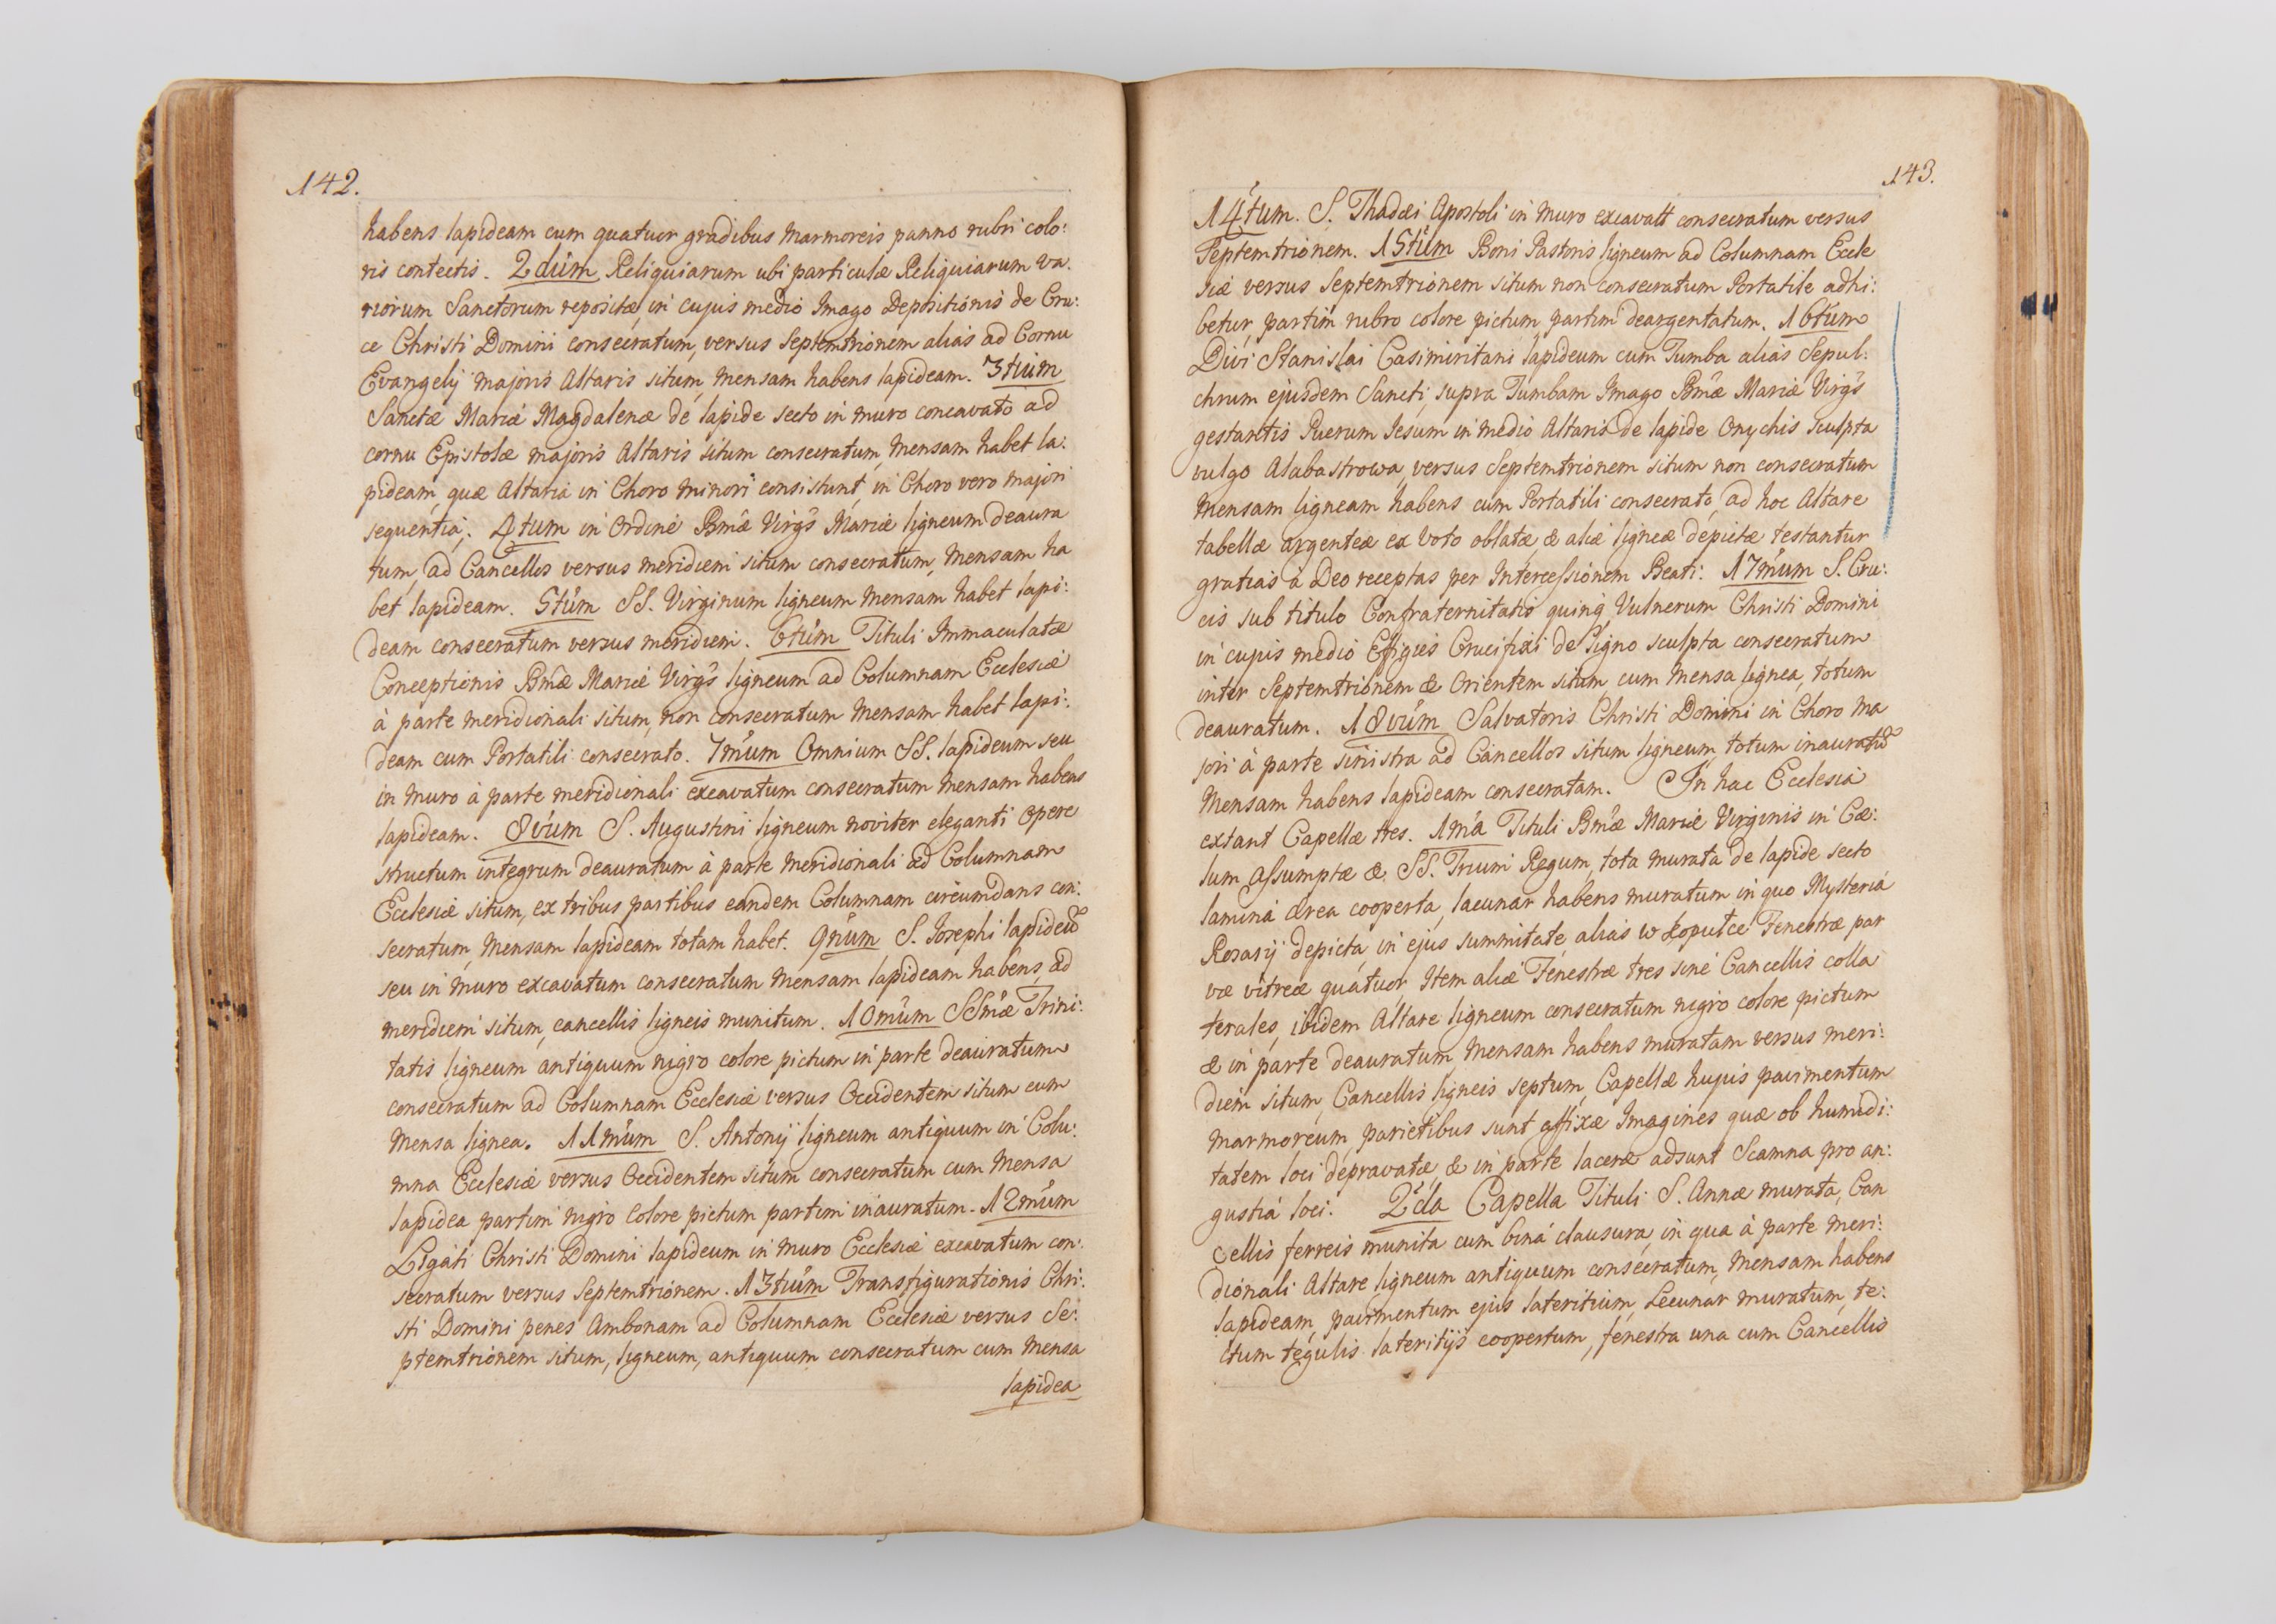 142.
habens lapideam cum quatuor gradibus marmoreis panno rubri colo:
ris contectis. 2dum Reliquiarum ubi particulæ Reliquiarum va.
riorum Sanctorum repositæ, in cujus medio Imago Depositionis de Cru:
ce Christi Domini consecratum, versus Septemtrionem alias ad Cornu
Evangelij majoris Altaris situm, mensam habens lapideam. 3tium
Sanctæ Mariæ Magdalenæ de lapide secto in muro concavato ad
cornu Epistolæ majoris Altaris situm consecratum, mensam habet la:
pideam, quæ Altaria in Choro minori consistunt, in Choro vero majori
sequentia; 4tum in Ordine Bmæ Virgs Mariæ ligneum deaura
tum, ad Cancellos versus meridiem situm consecratum, mensam ha
bet lapideam. 5tum SS. Virginum ligneum mensam habet lapi:
deam consecratum versus meridiem. 6tum Tituli Immaculatæ
Conceptionis Bmæ Mariæ Virgs ligneum ad Columnam Ecclesiæ
à parte meridionali situm, non consecratum mensam habet lapi:
deam cum Portatili consecrato. 7mum Omnium SS. lapideum seu
in muro à parte meridionali excavatum consecratum mensam habens
lapideam. 8vum S. Augustini ligneum noviter eleganti opere
structum integrum deauratum à parte meridionali ad Columnam
Ecclesiæ situm, ex tribus partibus eandem Columnam circumdans con:
secratum, mensam lapideam totam habet. 9num S. Josephi lapideũ
seu in muro excavatum consecratum mensam lapideam habens, ad
meridiem situm, cancellis ligneis munitum. 10mum SSmæ Trini:
tatis ligneum antiquum nigro colore pictum in parte deauratum
consecratum ad Columnam Ecclesiæ versus Occidentem situm cum
mensa lignea. 11mum S. Antonij ligneum antiquum in Colu:
mna Ecclesiæ versus Occidentem situm consecratum cum mensa
lapidea partim nigro colore pictum partim inauratum. 12mum
Ligati Christi Domini lapideum in muro Ecclesiæ excavatum con:
secratum versus Septemtrionem. 13tium Transfigurationis Chri:
sti Domini penes Ambonam ad Columnam Ecclesiæ versus Se:
ptemtrionem situm, ligneum, antiquum consecratum cum mensa
lapidea
143.
14tum. S. Thadæi Apostoli in muro excavatt consecratum versus
Septemtrionem. 15tum Boni Pastoris ligneum ad Columnam Eccle
siæ versus Septemtrionem situm non consecratum Portatile adhi:
betur, partim rubro colore pictum, partim deargentatum. 16tum
Divi Stanislai Casimiritani lapideum cum Tumba alias Sepul:
chrum ejusdem Sancti, supra Tumbam Imago Bmæ Mariæ Virgs
gestantis Puerum Iesum in medio Altaris de lapide Onychis sculpta
vulgo Alabastrowa, versus Septemtrionem situm non consecratum
mensam ligneam habens cum Portatili consecrato, ad hoc Altare
tabellæ argenteæ ex Voto oblatæ, & aliæ ligneæ depictæ testantur
gratias à Deo receptas per Intercessionem Beati: 17mum S. Cru:
cis sub titulo Confraternitatis quinq Vulnerum Christi Domini
in cujus medio Effigies Crucifixi de ligno sculpta consecratum
inter Septemtrionem & Orientem situm, cum mensa lignea, totum
deauratum. 18vum Salvatoris Christi Domini in Choro ma
jori à parte sinistra ad Cancellos situm ligneum, totum inauratũ
mensam habens lapideam consecratam. In hac Ecclesia
extant Capellæ tres. 1ma Tituli Bmæ Mariæ Virginis in Cæ:
lum Assumptæ & SS. Trium Regum, tota murata de lapide secto
laminá ærea cooperta, lacunar habens muratum in quo Mysteria
Rosarij depicta, in ejus summitate alias w kopułce Fenestræ par
væ vitreæ quatuor, Item aliæ Fenestræ tres sine Cancellis colla
terales, ibidem Altare ligneum consecratum nigro colore pictum
& in parte deauratum, mensam habens muratam versus meri:
diem situm, Cancellis ligneis septum, Capellæ hujus pavimentum
marmoreum, parietibus sunt affixæ Imagines quæ ob humidi:
tatem loci depravatæ, & in parte laceræ adsunt Scamna pro an:
gustiá loci. 2da Capella Tituli S. Annæ murata, Can
cellis ferreis munita cum biná clausurá, in qua à parte meri:
dionali Altare ligneum antiquum consecratum, mensam habens
lapideam, pavimentum ejus lateritium, Lecunar muratum, te:
ctum tegulis lateritijs coopertum, fenestra una cum Cancellis